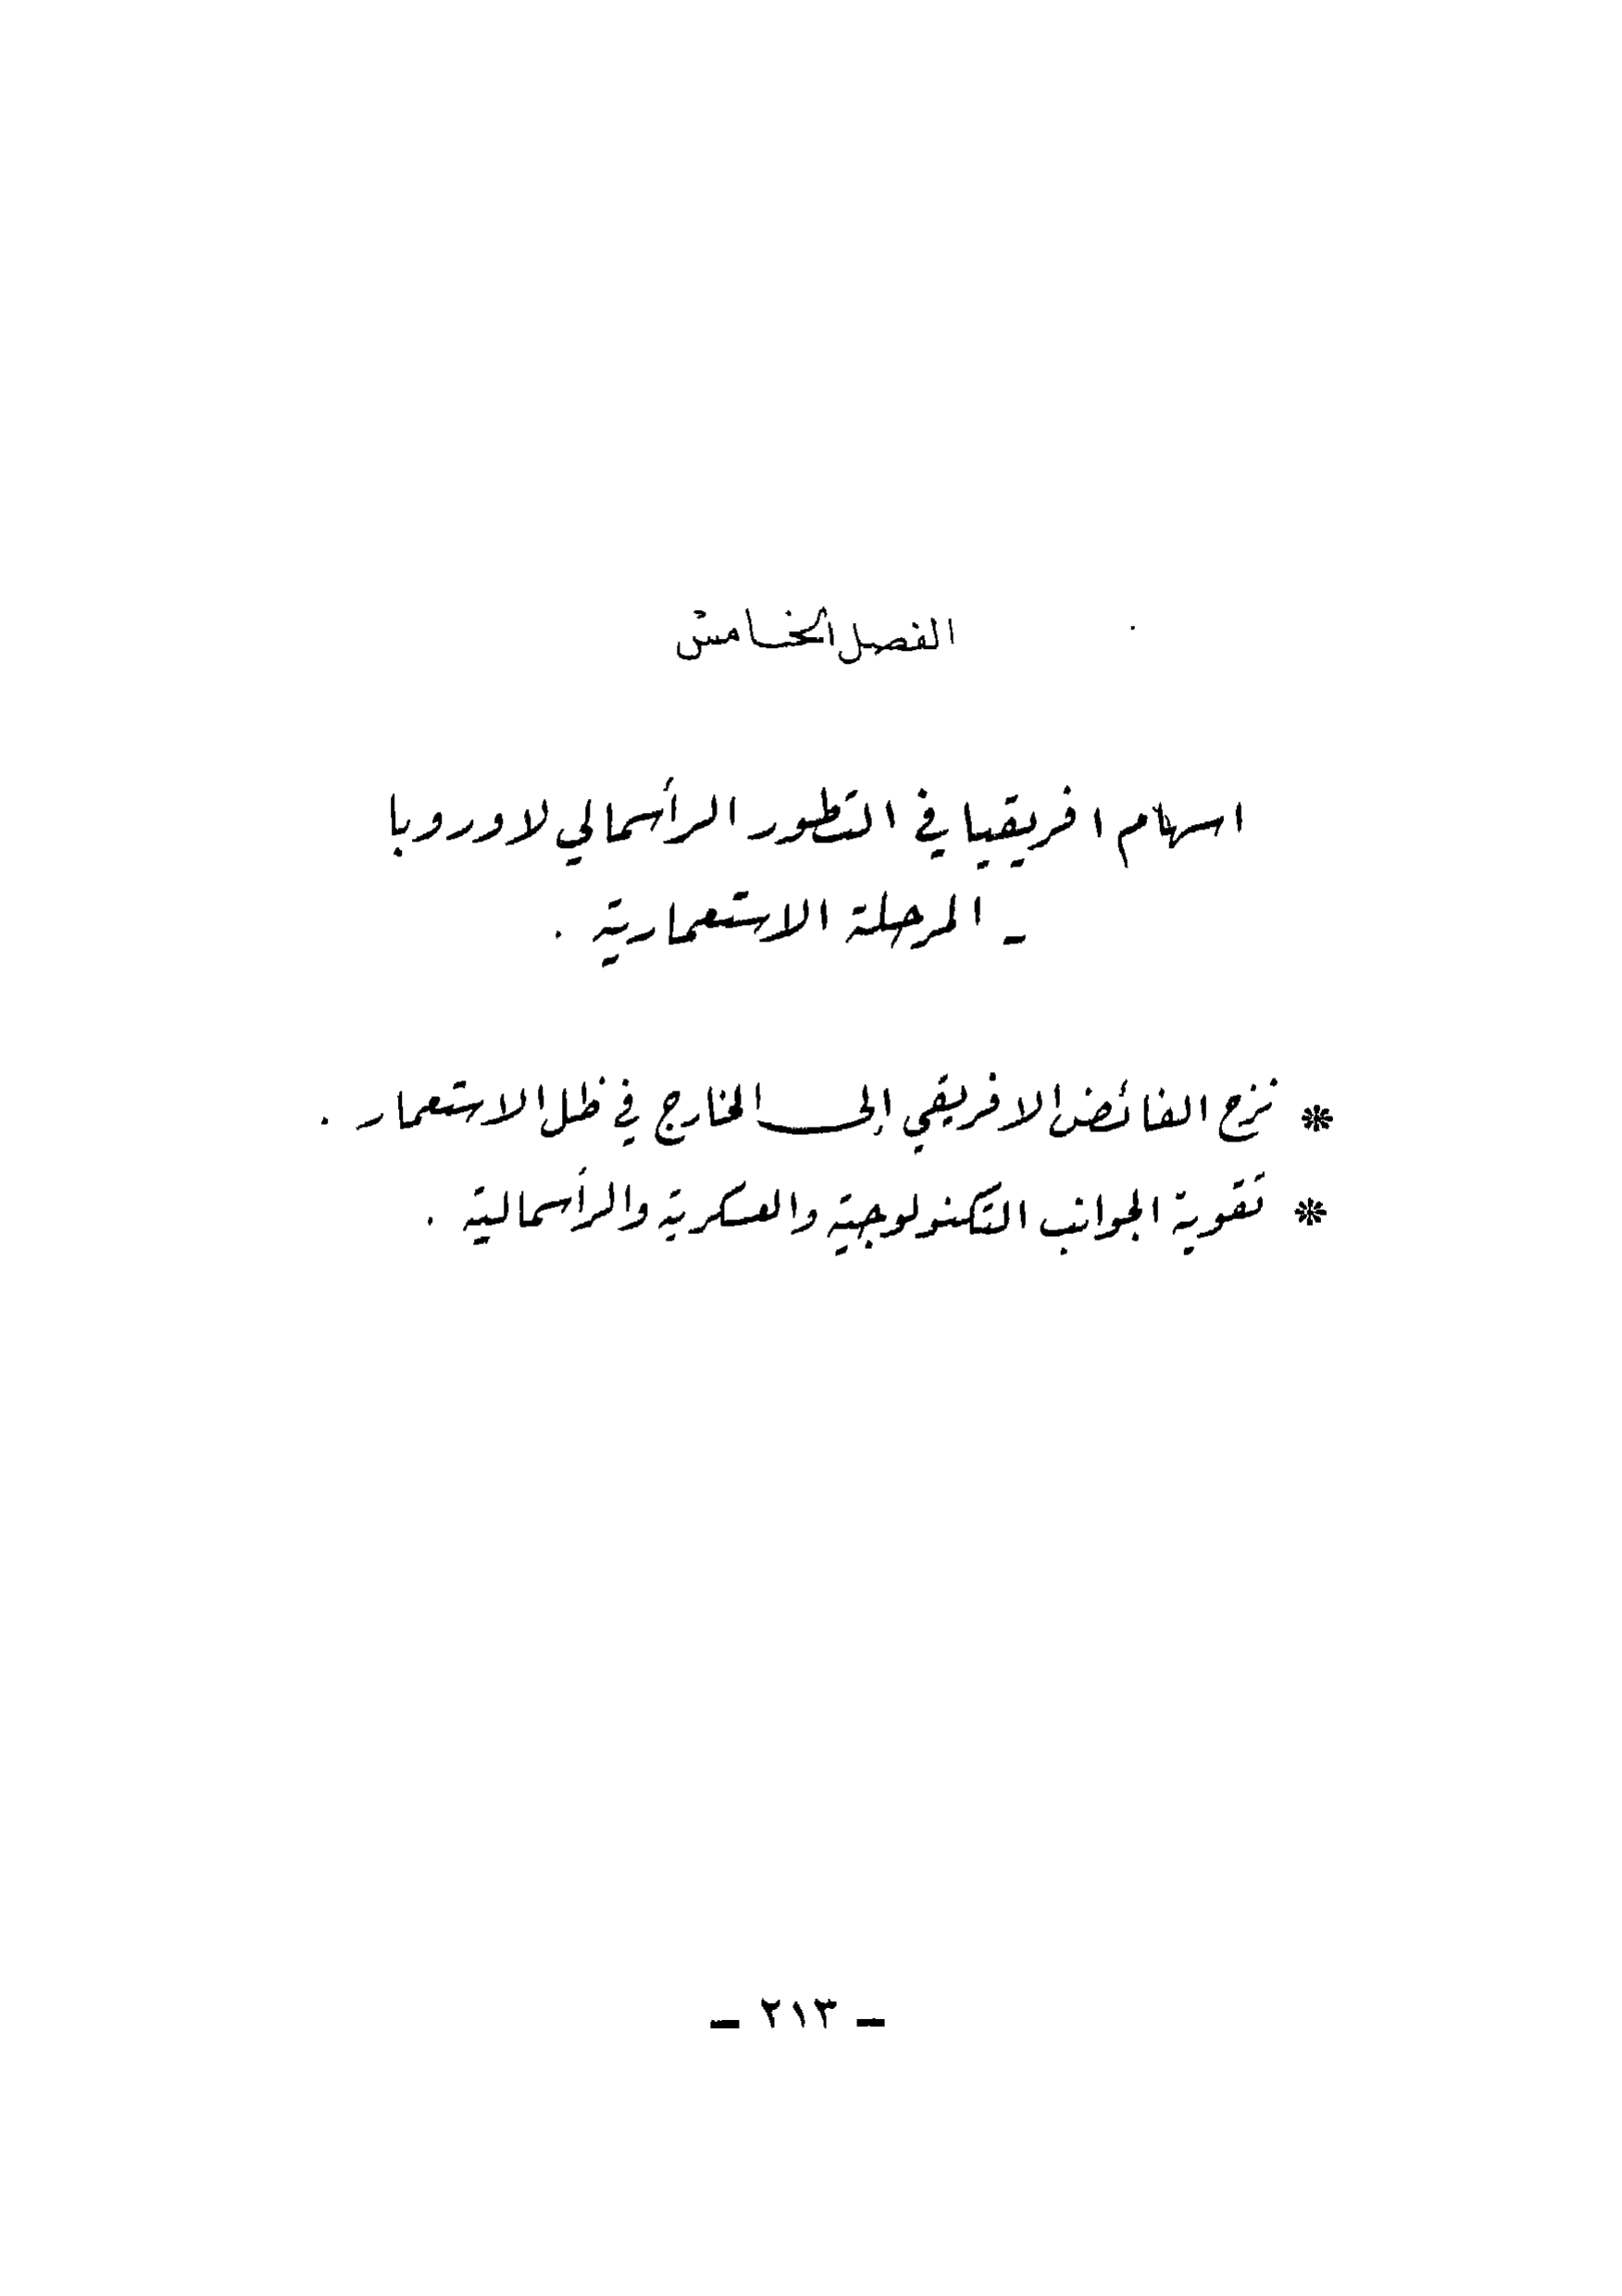 الفصل الخامس
اسهام افريقيا في التطور الرأسمالي لاوروبا
ـ المرحلة الاستعمارية .
* نزح الفائض الافريقي إلى الخارج في ظل الاستعمار .
* تقوية الجوانب التكنولوجية والعسكرية والرأسمالية .
ـ ٢١٣ ـ